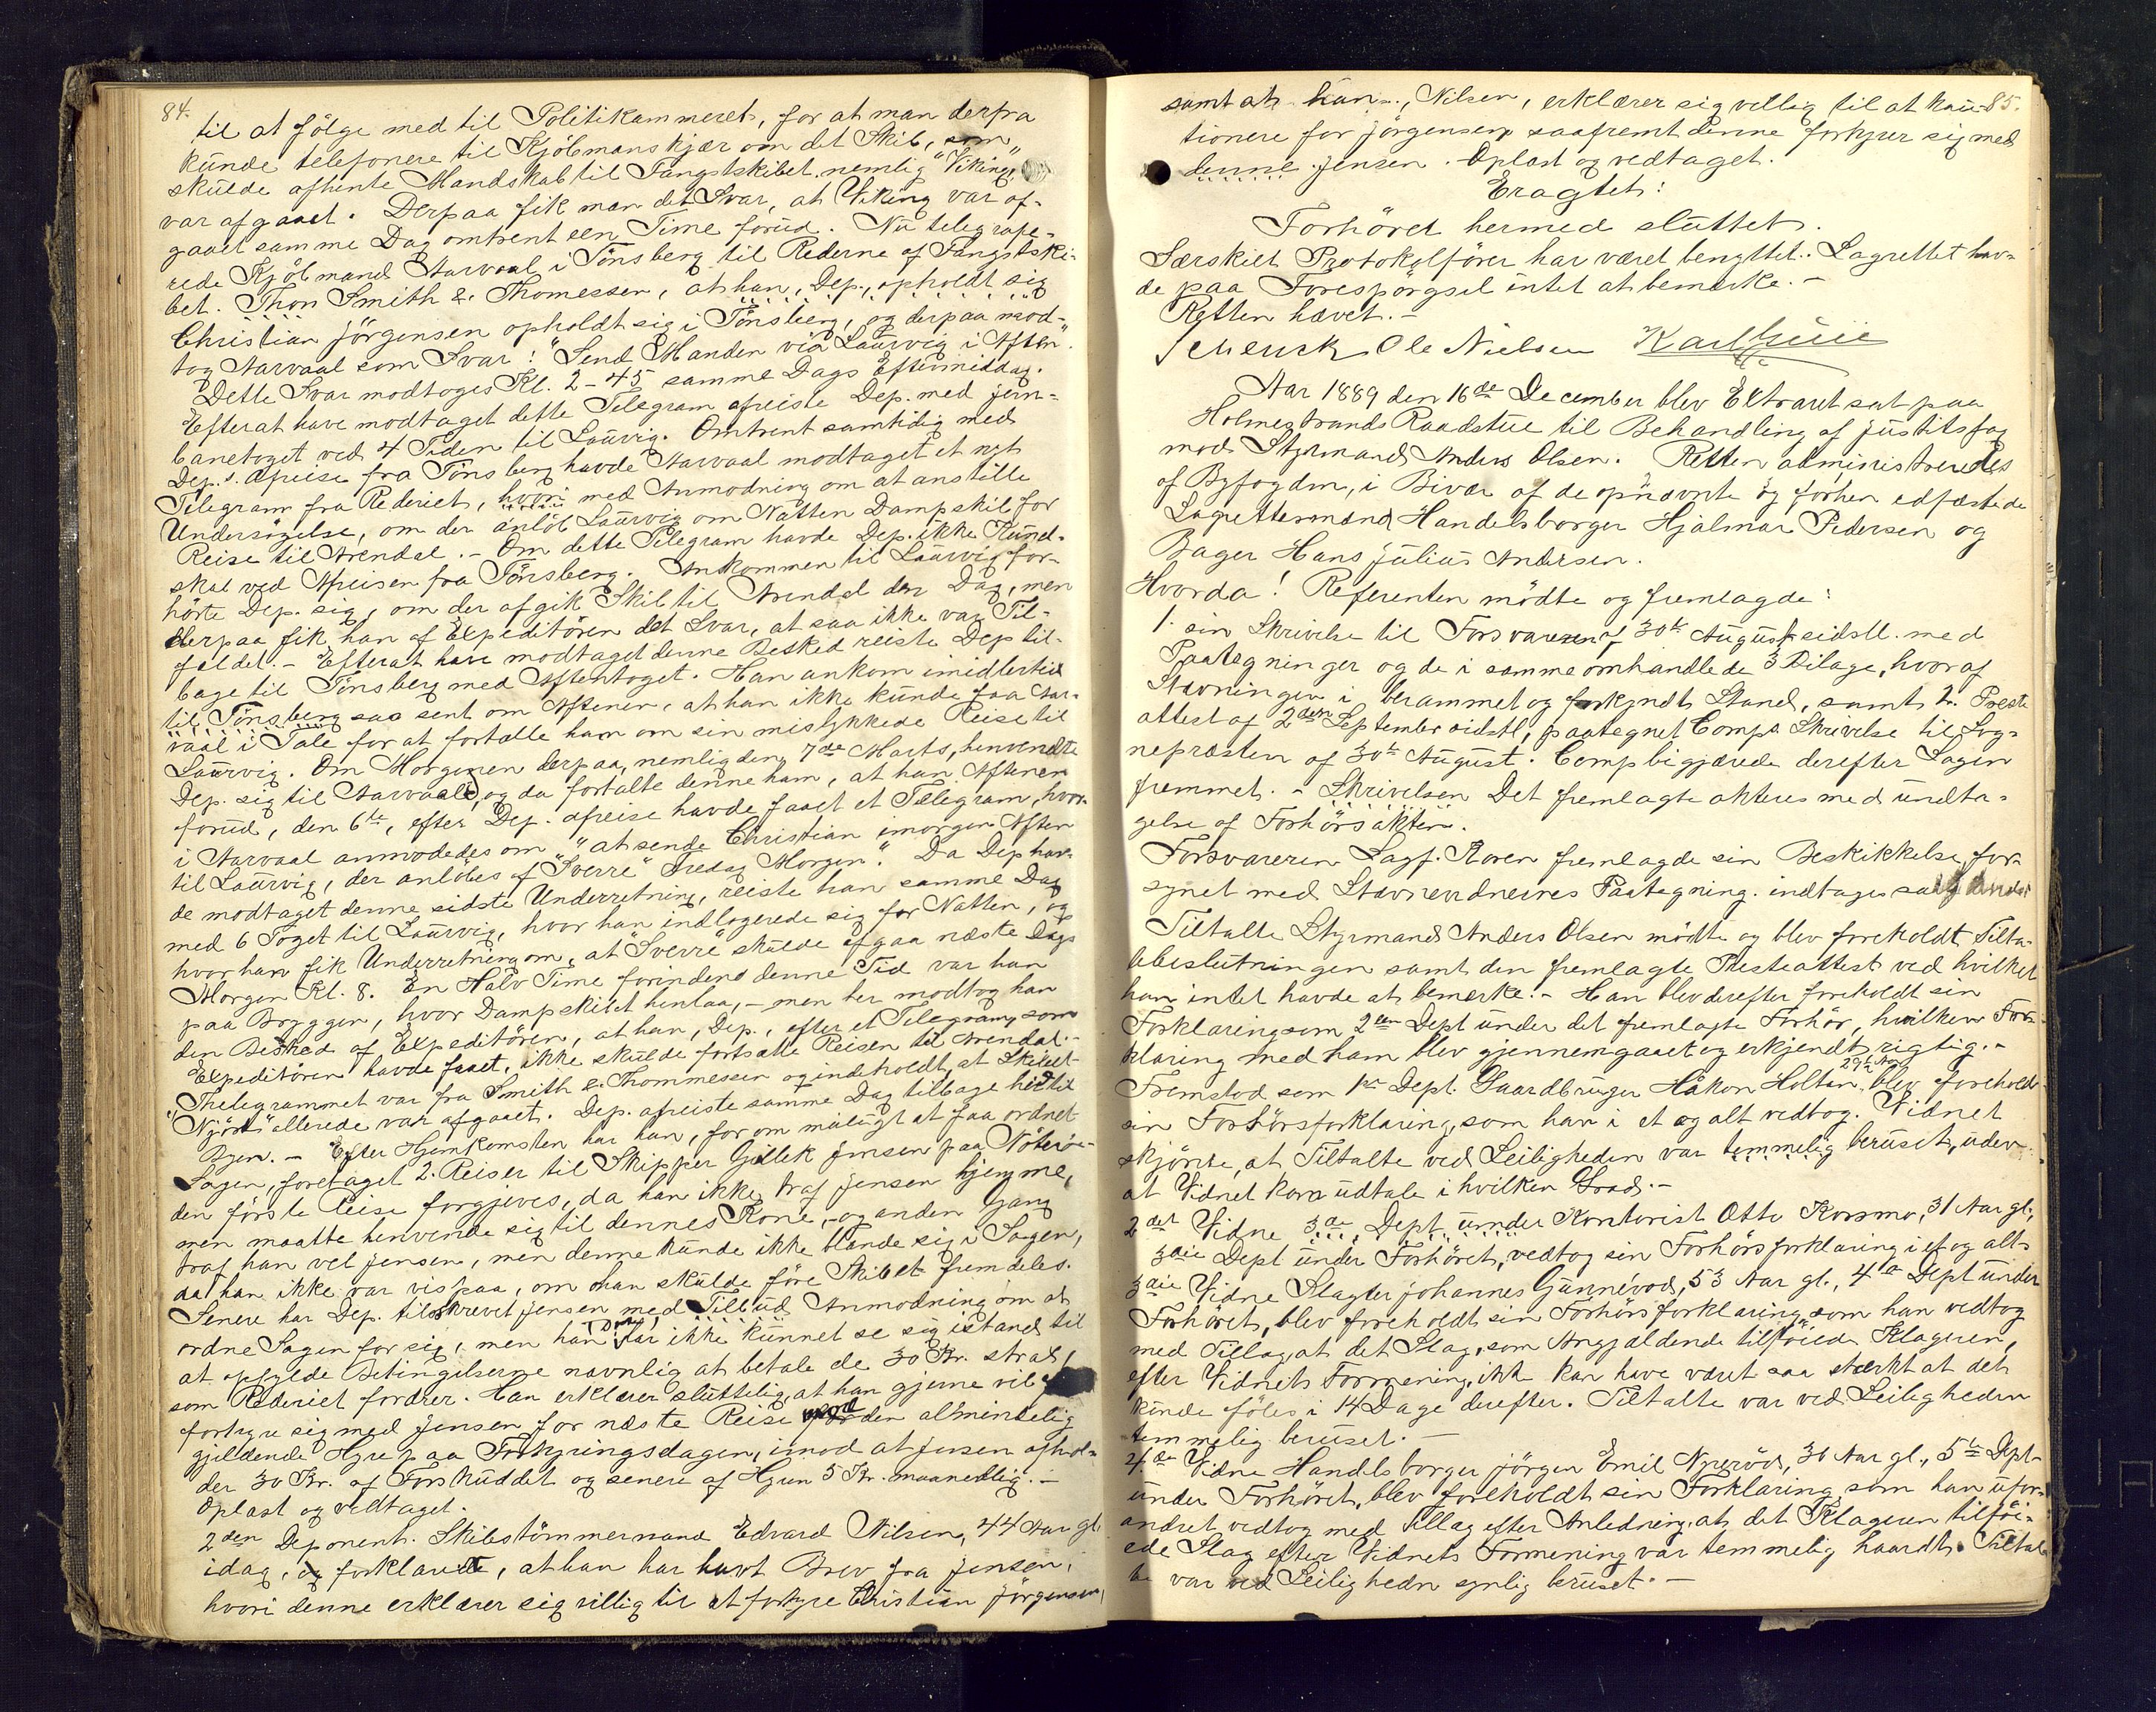 84.
til at følge med til Politikammeret, for at man derfra
kunde telefonere til Kjøbmanskjær om det Skib, som
skulde afhente Mandskab til Fangstskibet, nemlig "Viking"
var afgaaet. Derpaa fik man det Svar, at Viking var af-
gaaet samme Dag omtrent een Time forud. Nu telegrafe-
rede Kjøbmand Aarvaal i Tønsberg til Rederne af Fangstski-
bet. Thor Smith & Thomessen, at han, Dep., opholdt sig
Christian Jørgensen opholdt sig i Tønsberg, og derpaa mod-
tog Aarvaal som Svar: "Send Manden via Laurvig i Aften".
Dette Svar modtoges Kl. 2-45 samme Dags Eftermiddag.
Efter at have modtaget dette Telegram afreiste Dep. med jern-
banetoget ved 4 Tiden til Laurvig. Omtrent samtidig med
Dep.s. Afreise fra Tønsberg havde Aarvaal modtaget et nyt
Telegram fra Rederiet, hvori med Anmodning om at anstille
Undersøgelse, om der anløb Laurvig om Natten Dampskib for
Reise til Arendal. - Om dette Telegram havde Dep. ikke Kund-
skab ved Afreisen fra Tønsberg. Ankommen til Laurvig for-
hørte Dep. sig, om der afgik Skib til Arendal den Dag, men
derpaa fik han af Expeditøren det Svar, at saa ikke var Til-
fældet. - Efterat have modtaget denne Besked reiste Dep til-
bage til Tønsberg med Aftentoget. Han ankom imidlertid
til Tønsberg saa sent om Aftenen, at han ikke kunde faa Aar-
vaal i Tale for at fortælle ham om sin mislykkede Reise til
Laurvig. Om Morgenen derpaa, nemlig den 7de Marts, henvendte
Dep. sig til Aarvaal, og da fortalte denne ham, at han Aftenen
forud, den 6te, efter Dep. afreise havde faaet et Telegram, hvor-
i Aarvaal anmodedes om "at sende Christian imorgen Aften
til Laurvig, der anløbes af "Sverre" Fredag Morgen". Da Dep hav-
de modtaget denne sidste Underretning, reiste han samme Dag
med 6 Toget til Laurvig, hvor han indlogerede sig for Natten, og
hvor han fik Underretning om, at "Sverre" skulde afgaa næste Dags
Morgen Kl. 8. En Halv Time forinden denne Tid var han
paa Bryggen, hvor Dampskibet henlaa, - men her modtog han
den Besked af Expeditøren, at han, Dep., efter et Telegram, som
Expeditøren havde faaet, ikke skulde fortsætte Reisen til Arendal. -
Thelegrammet var fra Smith & Thommessen og indeholdt, at Skibet
"Njørd" allerede var afgaaet. Dep. afreiste samme Dag tilbage hertil
Byen. - Efter Hjemkomsten har han, for om muligt at faa ordnet
Sagen, foretaget 2. Reiser til Skipper Gullek Jensen paa Nøterø-
den første Reise forgjeves, da han ikke traf Jensen hjemme,
men maatte henvende sig til dennes Kone, - og anden Gang
traf han vel Jensen, men denne kunde ikke blande sig i Sagen,
da han ikke var vis paa, om han skulde føre Skibet fremdeles.
Senere har Dep. tilskrevet Jensen med Tilbud Anmodning om at
ordne Sagen for sig, men han Dep. har ikke kunnet se sig istand til
at opfylde Betingelserne navnlig at betale de 30 Kr. strax,
som Rederiet fordrer. Han erklærer sluttelig, at han gjerne vil
forhyre sig med Jensen for næste Reise mod den almindelig
gjældende Hyre paa Forhyringsdagen, imod at Jensen afhol-
der 30 Kr. af Forskuddet og senere af Hyren 5 Kr. maanedlig. -
Oplæst og vedtaget.
2den Deponent. Skibstømmermand Edvard Nilsen, 44 Aar gl.
idag, forklarede, at han har havt Brev fra Jensen,
hvori denne erklærer sig villig til at forhyre Christian Jørgensen,
85.
samt at han -, Nilsen, erklærer sig villig til at kau-
tionere for Jørgensen saafremt denne forhyrer sig med
denne Jensen. Oplæst og vedtaget.
Eragtet:
Forhøret hermed sluttet.
Særskilt Protokolfører har været benyttet. Lagrettet hav-
de paa Forespørgsel intet at bemærke. -
Retten hævet. -
Schenck Ole Nielsen Karl
Aar 1889 den 16de December blev Extraret sat paa
Holmestrands Raadstue til Behandling af Justitssag
mod Styrmand Anders Olsen. Retten administreredes
af Byfogden, i Bivær af de opnævnte og forhen edfæstede
Lagrettesmænd Handelsborger Hjalmar Pedersen og
Bager Hans Julius Andersen.
Hvorda! Referenten mødte og fremlagde:
1. sin Skrivelse til Forsvareren af 30te August sidstl. med
Paategninger og de i samme omhandlede 3 Bilage, hvoraf
Stævningen i berammet og forkyndt Stand, samt 2. Preste
attest af 2den September sidstl, paategnet Comps. Skrivelse til Sog-
nepræsten af 30te August. Comp begjærede derefter Sagen
fremmet. - Skrivelsen Det fremlagte akteres med undta-
gelse af Forhørsakten.
Forsvareren Sagf. Roren fremlagde sin Beskikkelse, for-
synet med Stævnevidnernes Paategning. indtages
Tiltalte Styrmand Anders Olsen mødte og blev foreholdt Tilta-
lebeslutningen samt den fremlagte Presteattest ved hvilket
han intet havde at bemerke. - Han blev derefter foreholdt sin
Forklaring som 2den Dept under det fremlagte Forhør, hvilken For-
klaring med ham blev gjennemgaaet og erkjendt rigtig. -
Fremstod som 1ste Dept. Gaardbruger Håkon Holtan 29 Aar blev foreholdt
sin Forhørsforklaring, som han i et og alt vedtog. Vidnet
skjønte, at Tiltalte ved Leiligheden var temmelig beruset, uden
at Vidnet kan udtale i hvilken Grad. -
2det Vidne 3die Dept under Kontorist Otto Kossmo, 31 Aar gl.,
3die Dept under Forhøret, vedtog sin Forhørsforklaring i et og alt
3die Vidne Slagter Johannes Gunnerød, 53 Aar gl., 4de Dept under
Forhøret, blev foreholdt sin Forhørsforklaring, som han vedtog
med Tillæg, at det Slag, som Angjældende tilføiede Klageren,
efter Vidnets Formening, ikke kan have været saa stærkt at det
kunde føles i 14 Dage derefter. Tiltalte var ved Leiligheden
temmelig beruset. -
4de Vidne Handelsborger Jørgen Emil Nyerød, 36 Aar gl., 5te Dept
under Forhøret, blev foreholdt sin Forklaring, som han ufor-
andret vedtog med tillæg efter Anledning, at det Klageren tilføi-
ede Slag efter Vidnets Formening var temmelig haardt. Tiltal-
te var ved Leiligheden synlig beruset. -